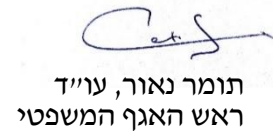 תומר נאור, עו״ד
ראש האגף המשפטי